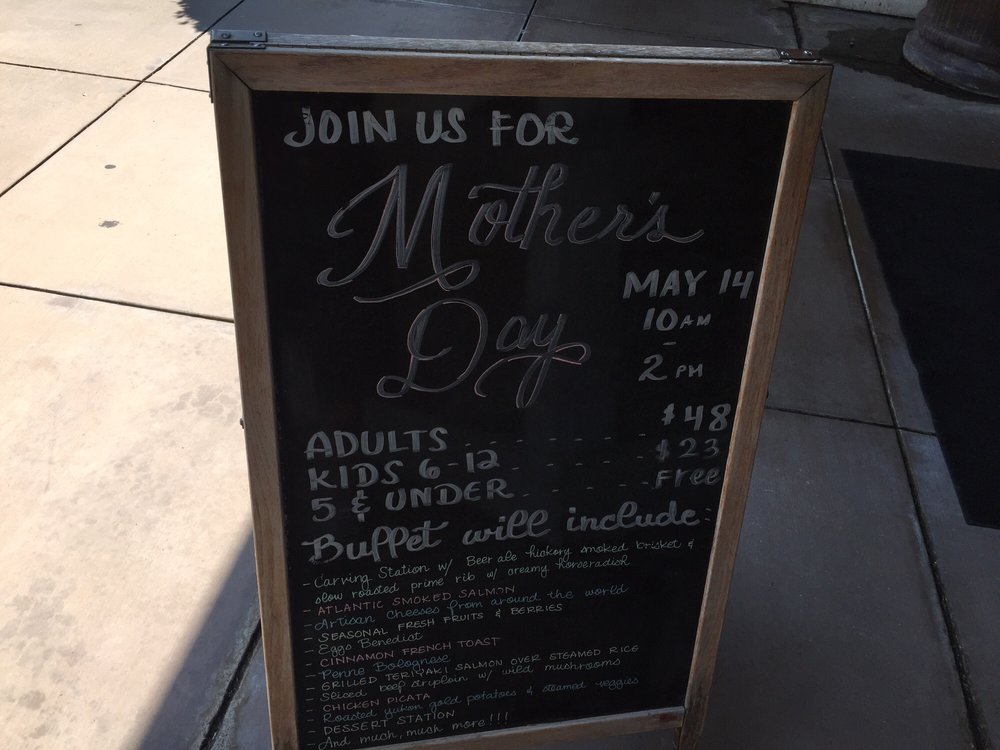 JOIN US FOR
Mother's
Day
MAY 14
10 AM
-
2 PM
ADULTS - - - - - - - $48
KIDS 6-12 - - - - - - $23
5 & UNDER - - - - - - Free
Buffet will include:
- Carving Station w/ Beer ale hickory smoked brisket &
slow roasted prime rib w/ creamy horseradish
- ATLANTIC SMOKED SALMON
- Artisan Cheeses from around the world
- SEASONAL FRESH FRUITS & BERRIES
- Eggs Benedict
- CINNAMON FRENCH TOAST
- Penne Bolognese
- GRILLED TERIYAKI SALMON OVER STEAMED RICE
- Sliced beef striploin w/ wild mushrooms
- CHICKEN PICATA
- Roasted yukon gold potatoes & steamed veggies
- DESSERT STATION
- And much, much more!!!